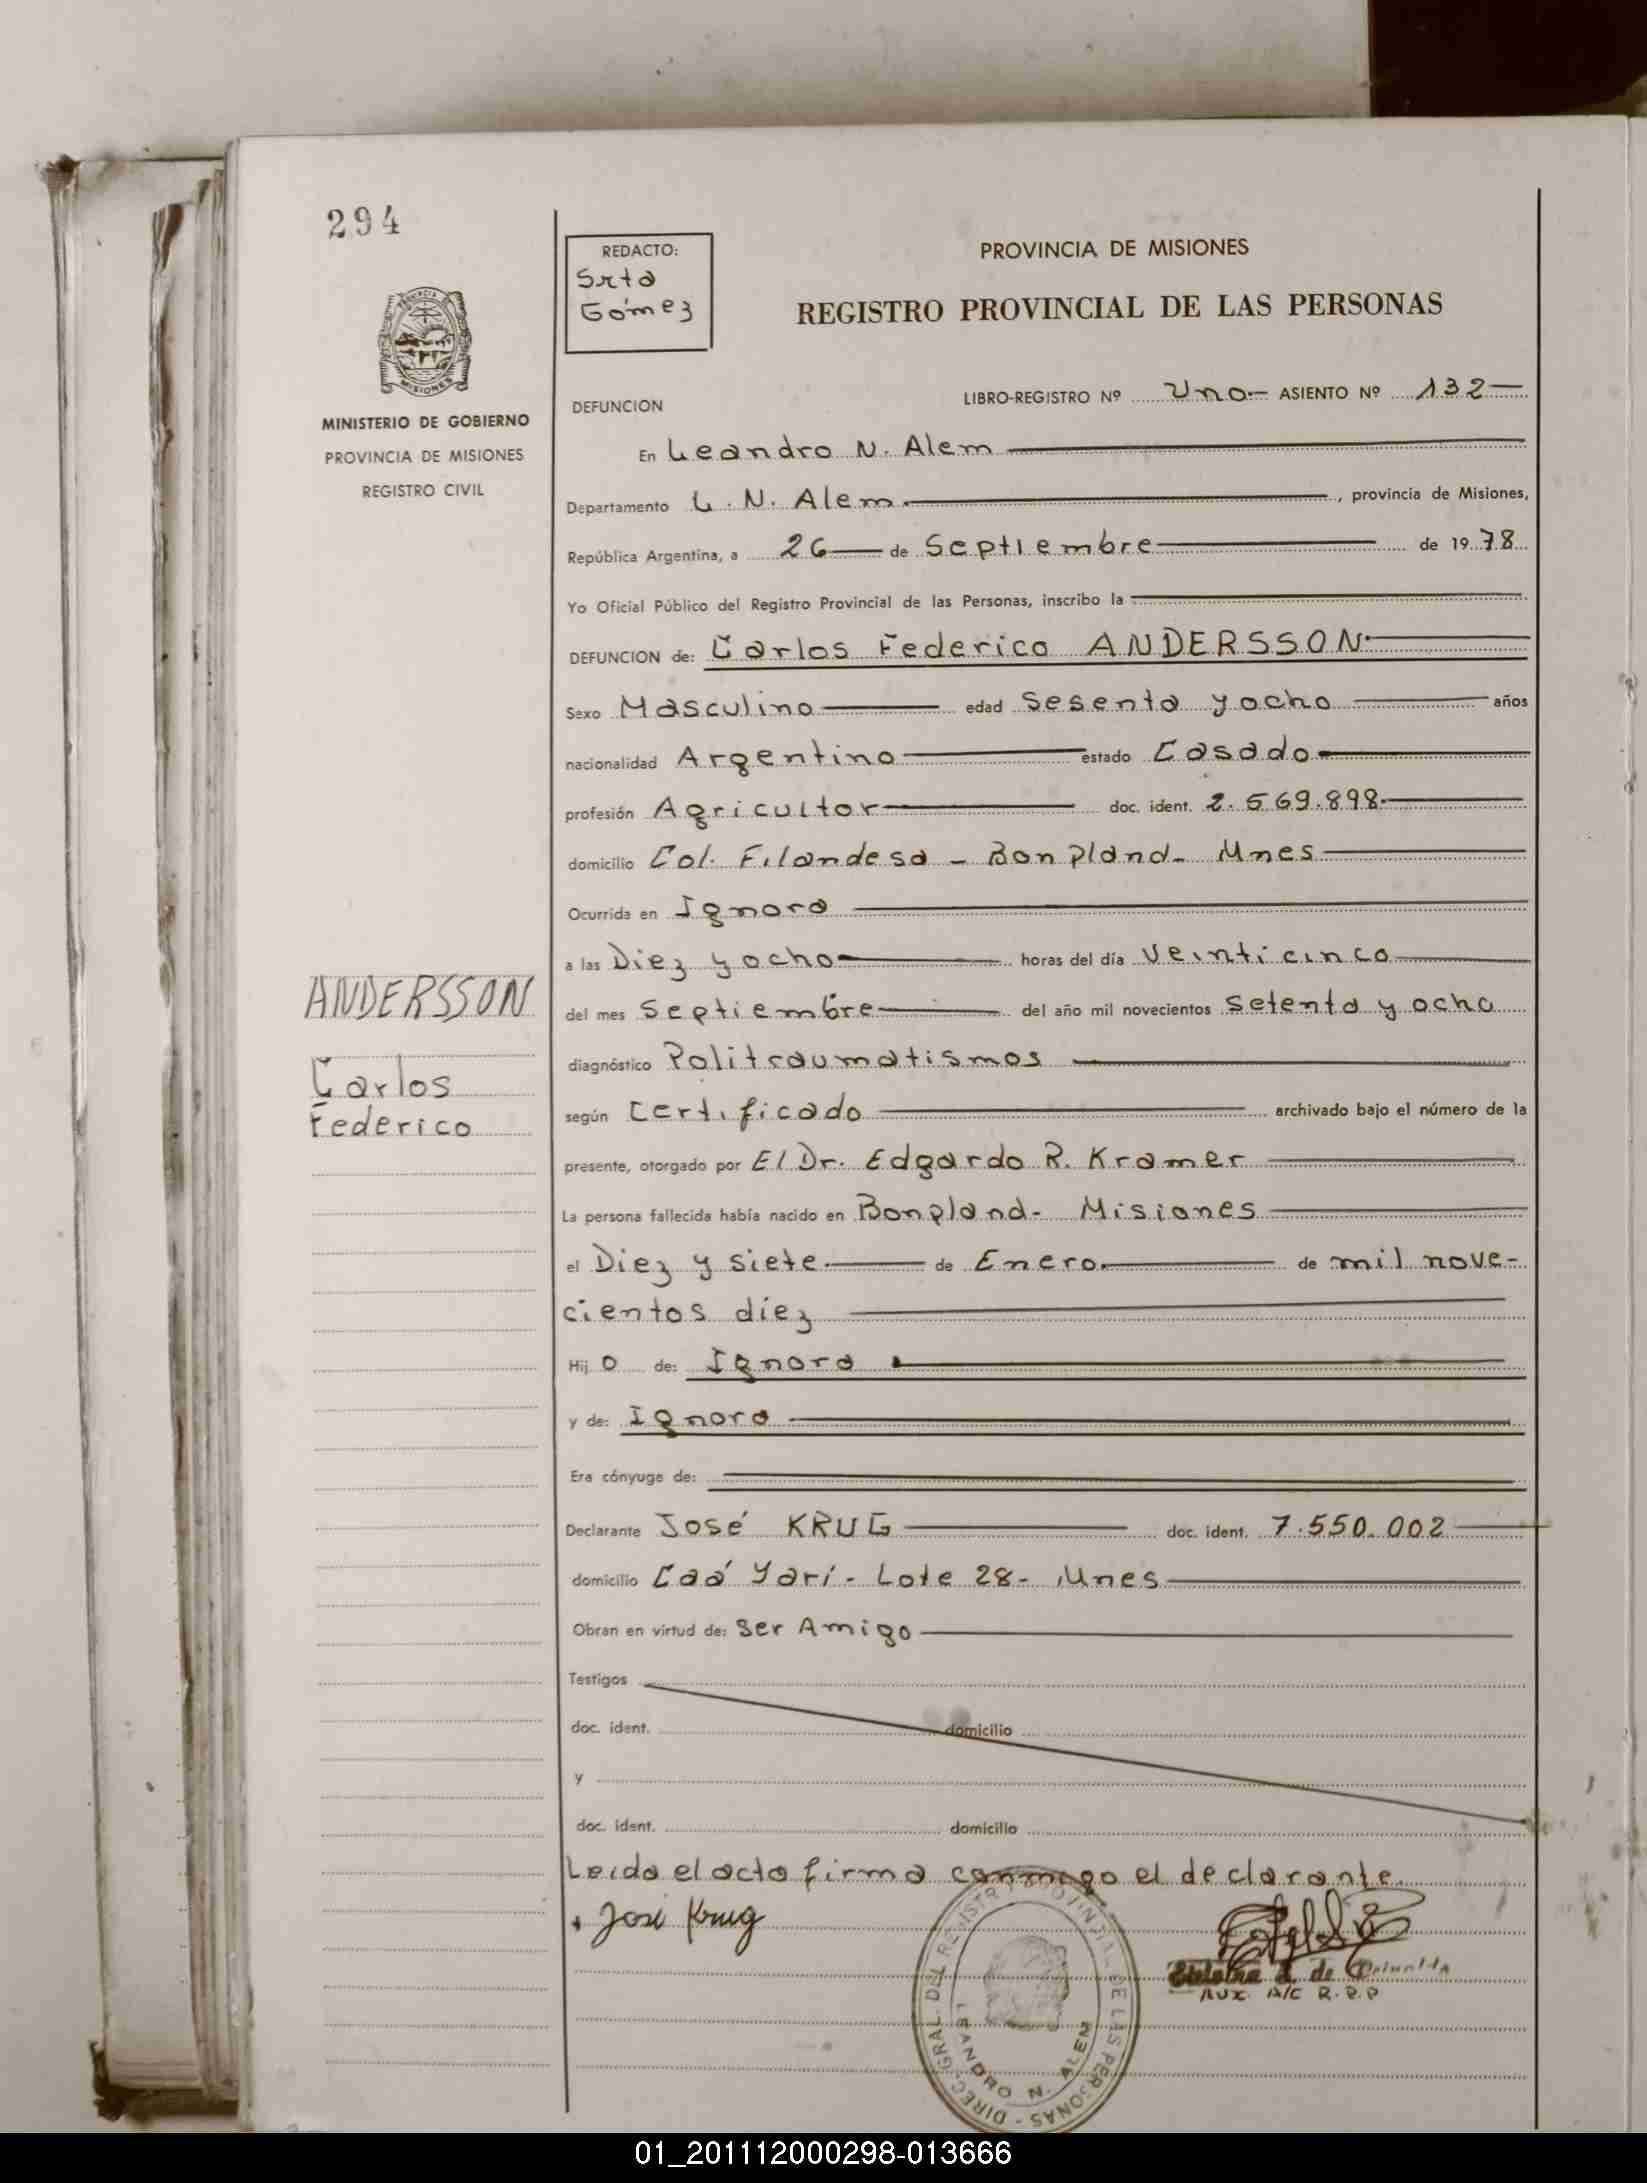 294
REDACTO:
Srta
Gómez
PROVINCIA DE MISIONES
REGISTRO PROVINCIAL DE LAS PERSONAS
MISIONES
MINISTERIO DE GOBIERNO
PROVINCIA DE MISIONES
REGISTRO CIVIL
LIBRO-REGISTRO Nº Uno- ASIENTO Nº 132
DEFUNCION
En Leandro N. Alem
Departamento L. N. Alem , provincia de Misiones,
República Argentina, a 26 de Septiembre de 1978
Yo Oficial Público del Registro Provincial de las Personas, inscribo la
DEFUNCION de: Carlos Federico ANDERSSON
Sexo Masculino edad Sesenta y ocho años
nacionalidad Argentino estado Casado
profesión Agricultor doc. ident. 2.569.898
domicilio Col. Filandesa - Bonpland - Mnes
Ocurrida en Ignora
a las Diez y ocho horas del día Veinticinco
del mes Septiembre del año mil novecientos Setenta y ocho
diagnóstico Politraumatismos
según Certificado archivado bajo el número de la
presente, otorgado por El Dr. Edgardo R. Kramer
La persona fallecida había nacido en Bonpland - Misiones
el Diez y siete de Enero de mil nove-
cientos diez
Hijo de: Ignora
y de: Ignora
Era cónyuge de:
Declarante José KRUG doc. ident. 7.550.002
domicilio Caá Yarí - Lote 28 - Mnes
Obran en virtud de: Ser Amigo
Testigos
doc. ident. domicilio
y
doc. ident. domicilio
Leida el acta firma conmigo el declarante.
José Krug
ANDERSSON
Carlos
Federico
de
AUX. A/C R.P.P
DIREC. GRAL. DEL REGISTRO PROVINCIAL DE LAS PERSONAS -
LEANDRO N. ALEM
01_201112000298-013666